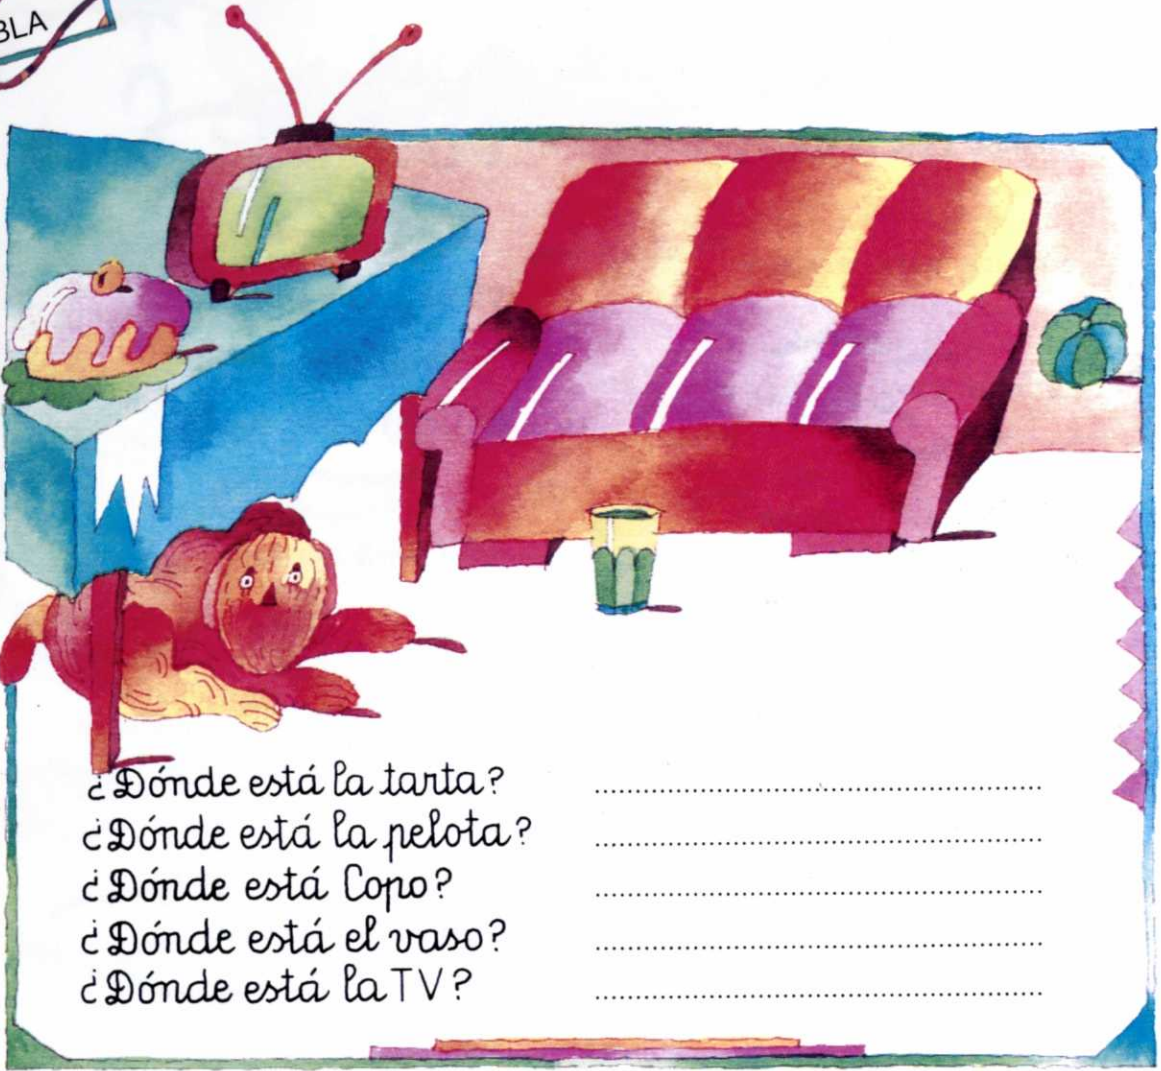 BLA
¿Dónde está la tarta?
¿Dónde está la pelota?
¿Dónde está Copo?
¿Dónde está el vaso?
¿Dónde está la TV?